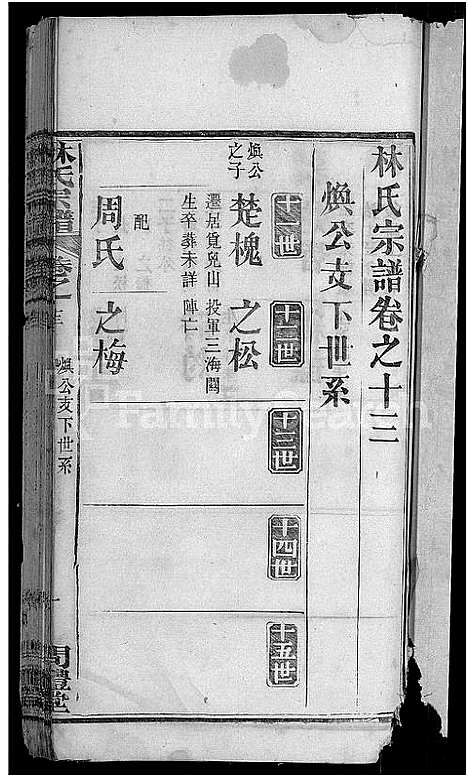 林氏宗譜卷之十三
煥公支下世系
十一世
十二世
十三世
十四世
十五世
煥公之子
楚槐
之松
遷居覓兒山
投軍三海關
生卒葬未詳
陣亡
配
周氏
之梅
林氏宗譜
卷之十三
煥公支下世系
一
問禮堂
FamilySearch